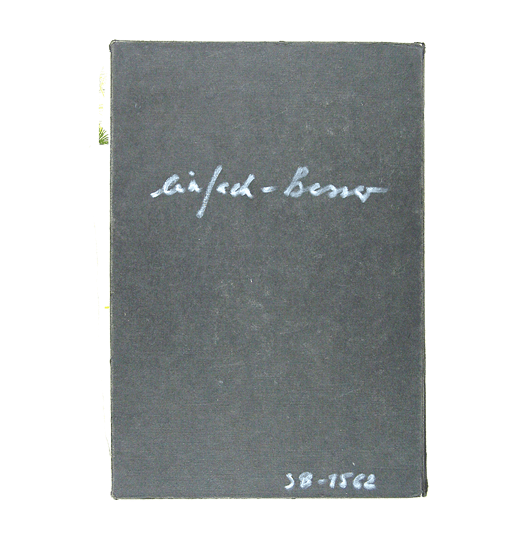 einfach - Besser
JB-1562